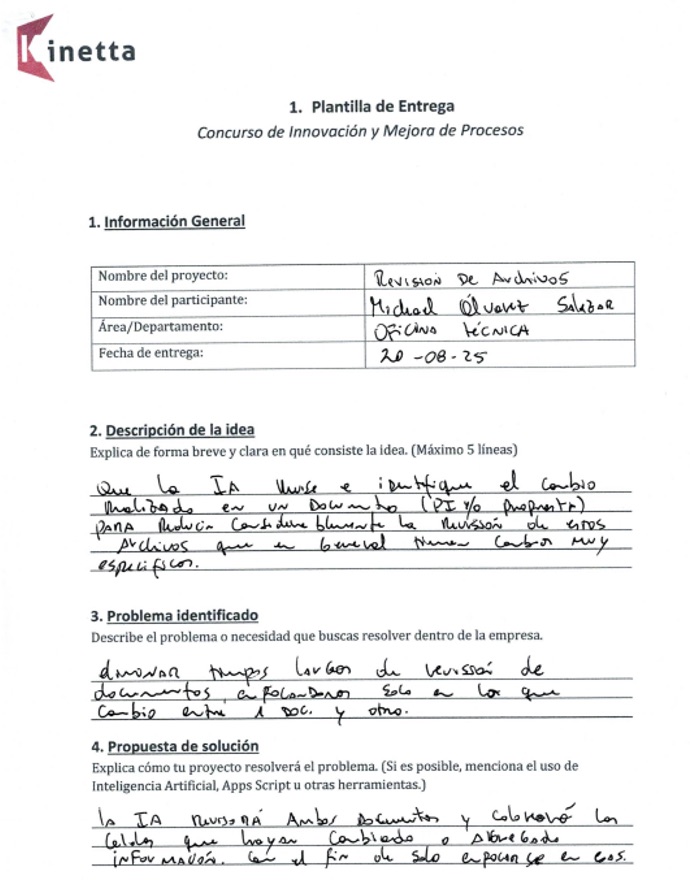 Kinetta
1. Plantilla de Entrega
Concurso de Innovación y Mejora de Procesos
1. Información General
Nombre del proyecto: Revisión De Archivos
Nombre del participante: Michael Álvarez Salazar
Área/Departamento: Oficina técnica
Fecha de entrega: 20-08-25
2. Descripción de la idea
Explica de forma breve y clara en qué consiste la idea. (Máximo 5 líneas)
Que la IA revise e identifique el cambio
realizado en un Documento (PI y/o propuesta)
para reducir considerablemente la revisión de estos
Archivos que en General tienen cambios muy
especificos.
3. Problema identificado
Describe el problema o necesidad que buscas resolver dentro de la empresa.
tiempos largos de revisión de
documentos, enfocandonos solo en los que
cambio entre 1 Doc. y otro.
4. Propuesta de solución
Explica cómo tu proyecto resolverá el problema. (Si es posible, menciona el uso de
Inteligencia Artificial, Apps Script u otras herramientas.)
la IA revisará Ambos Documentos y los
celdas que hayan cambiado o
información. Con el fin de solo enfocarse en